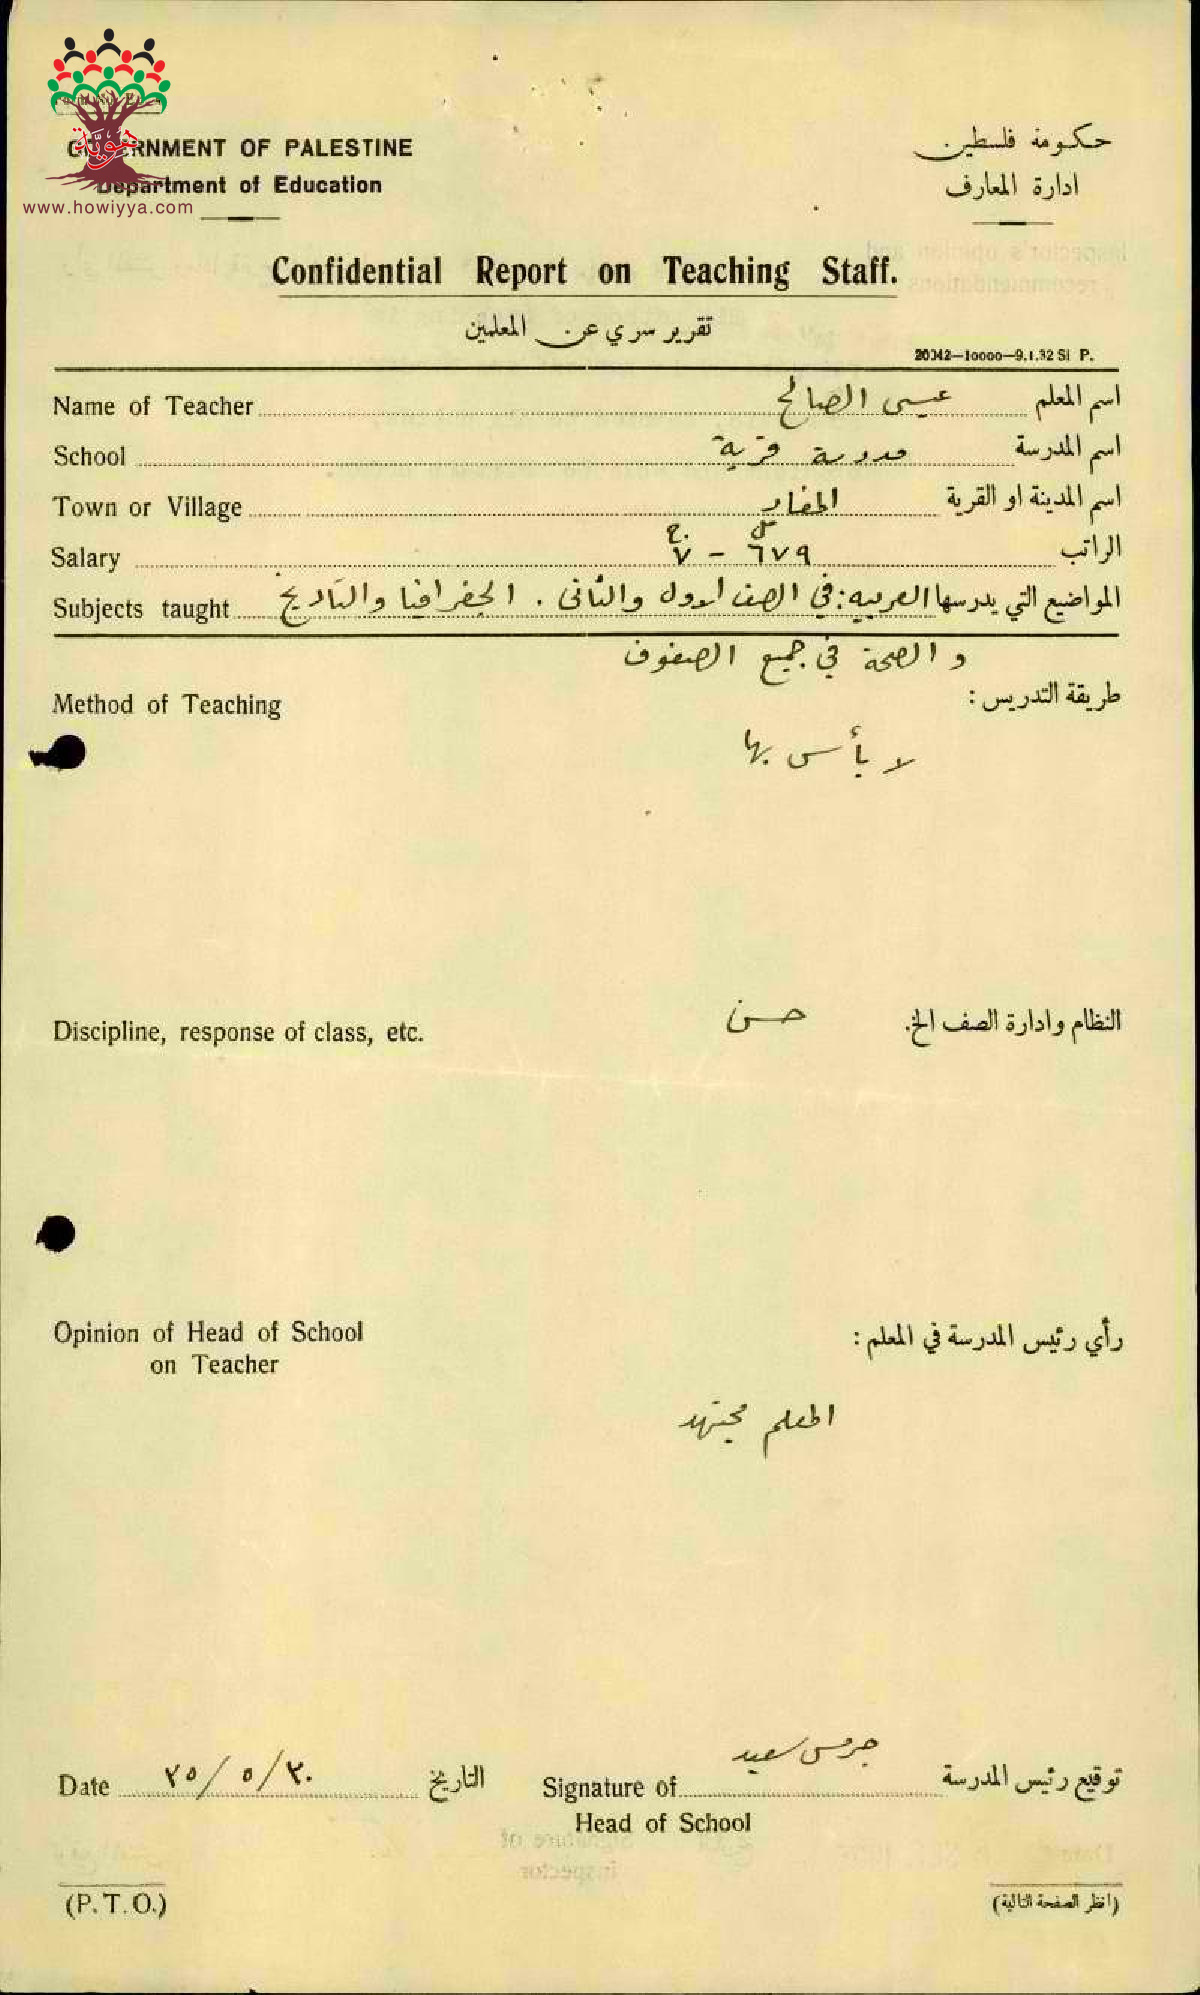 GOVERNMENT OF PALESTINE
Department of Education
حكومة فلسطين
ادارة المعارف
هويّة
www.howiyya.com
Confidential Report on Teaching Staff.
تقرير سري عن المعلمين
20042—10000—9.1.32 SI P.
Name of Teacher عيسى الصالح اسم المعلم
School مدرسة قرية اسم المدرسة
Town or Village المغار اسم المدينة او القرية
Salary ج ٧ - مل ٦٧٩ الراتب
Subjects taught المواضيع التي يدرسها العربيه: في الصف الاول والثاني . الجغرافيا والتاريخ
و الصحة في جميع الصفوف
Method of Teaching طريقة التدريس :
لا بأس بها
Discipline, response of class, etc. حسن النظام وادارة الصف الخ.
Opinion of Head of School on Teacher رأي رئيس المدرسة في المعلم :
المعلم مجتهد
Date ٣٠/٥/٣٥ التاريخ
Signature of Head of School جرجس سعيد توقيع رئيس المدرسة
(P.T.O.)
(انظر الصفحة التالية)